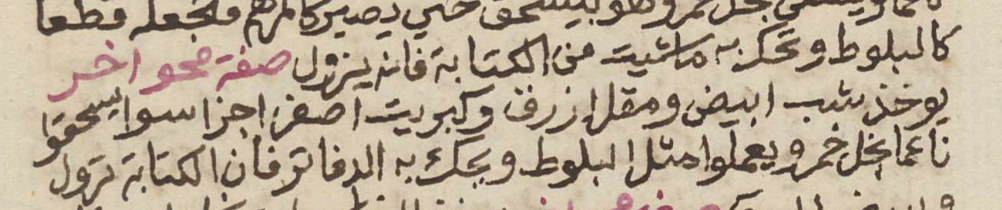 ناعما ويسقى بخل خمر وهو يسحق حتى يصير كالمرهم فتجعله قطعا
كالبلوط وتحك به ما شيت من الكتابة فانه يزول صفة محو اخر
يوخذ شب ابيض ومقل ازرق وكبريت اصفر اجزا سوا يسحقوا
ناعما بخل خمر ويعملوا مثل البلوط ويحك به الدفاتر فان الكتابة تزول